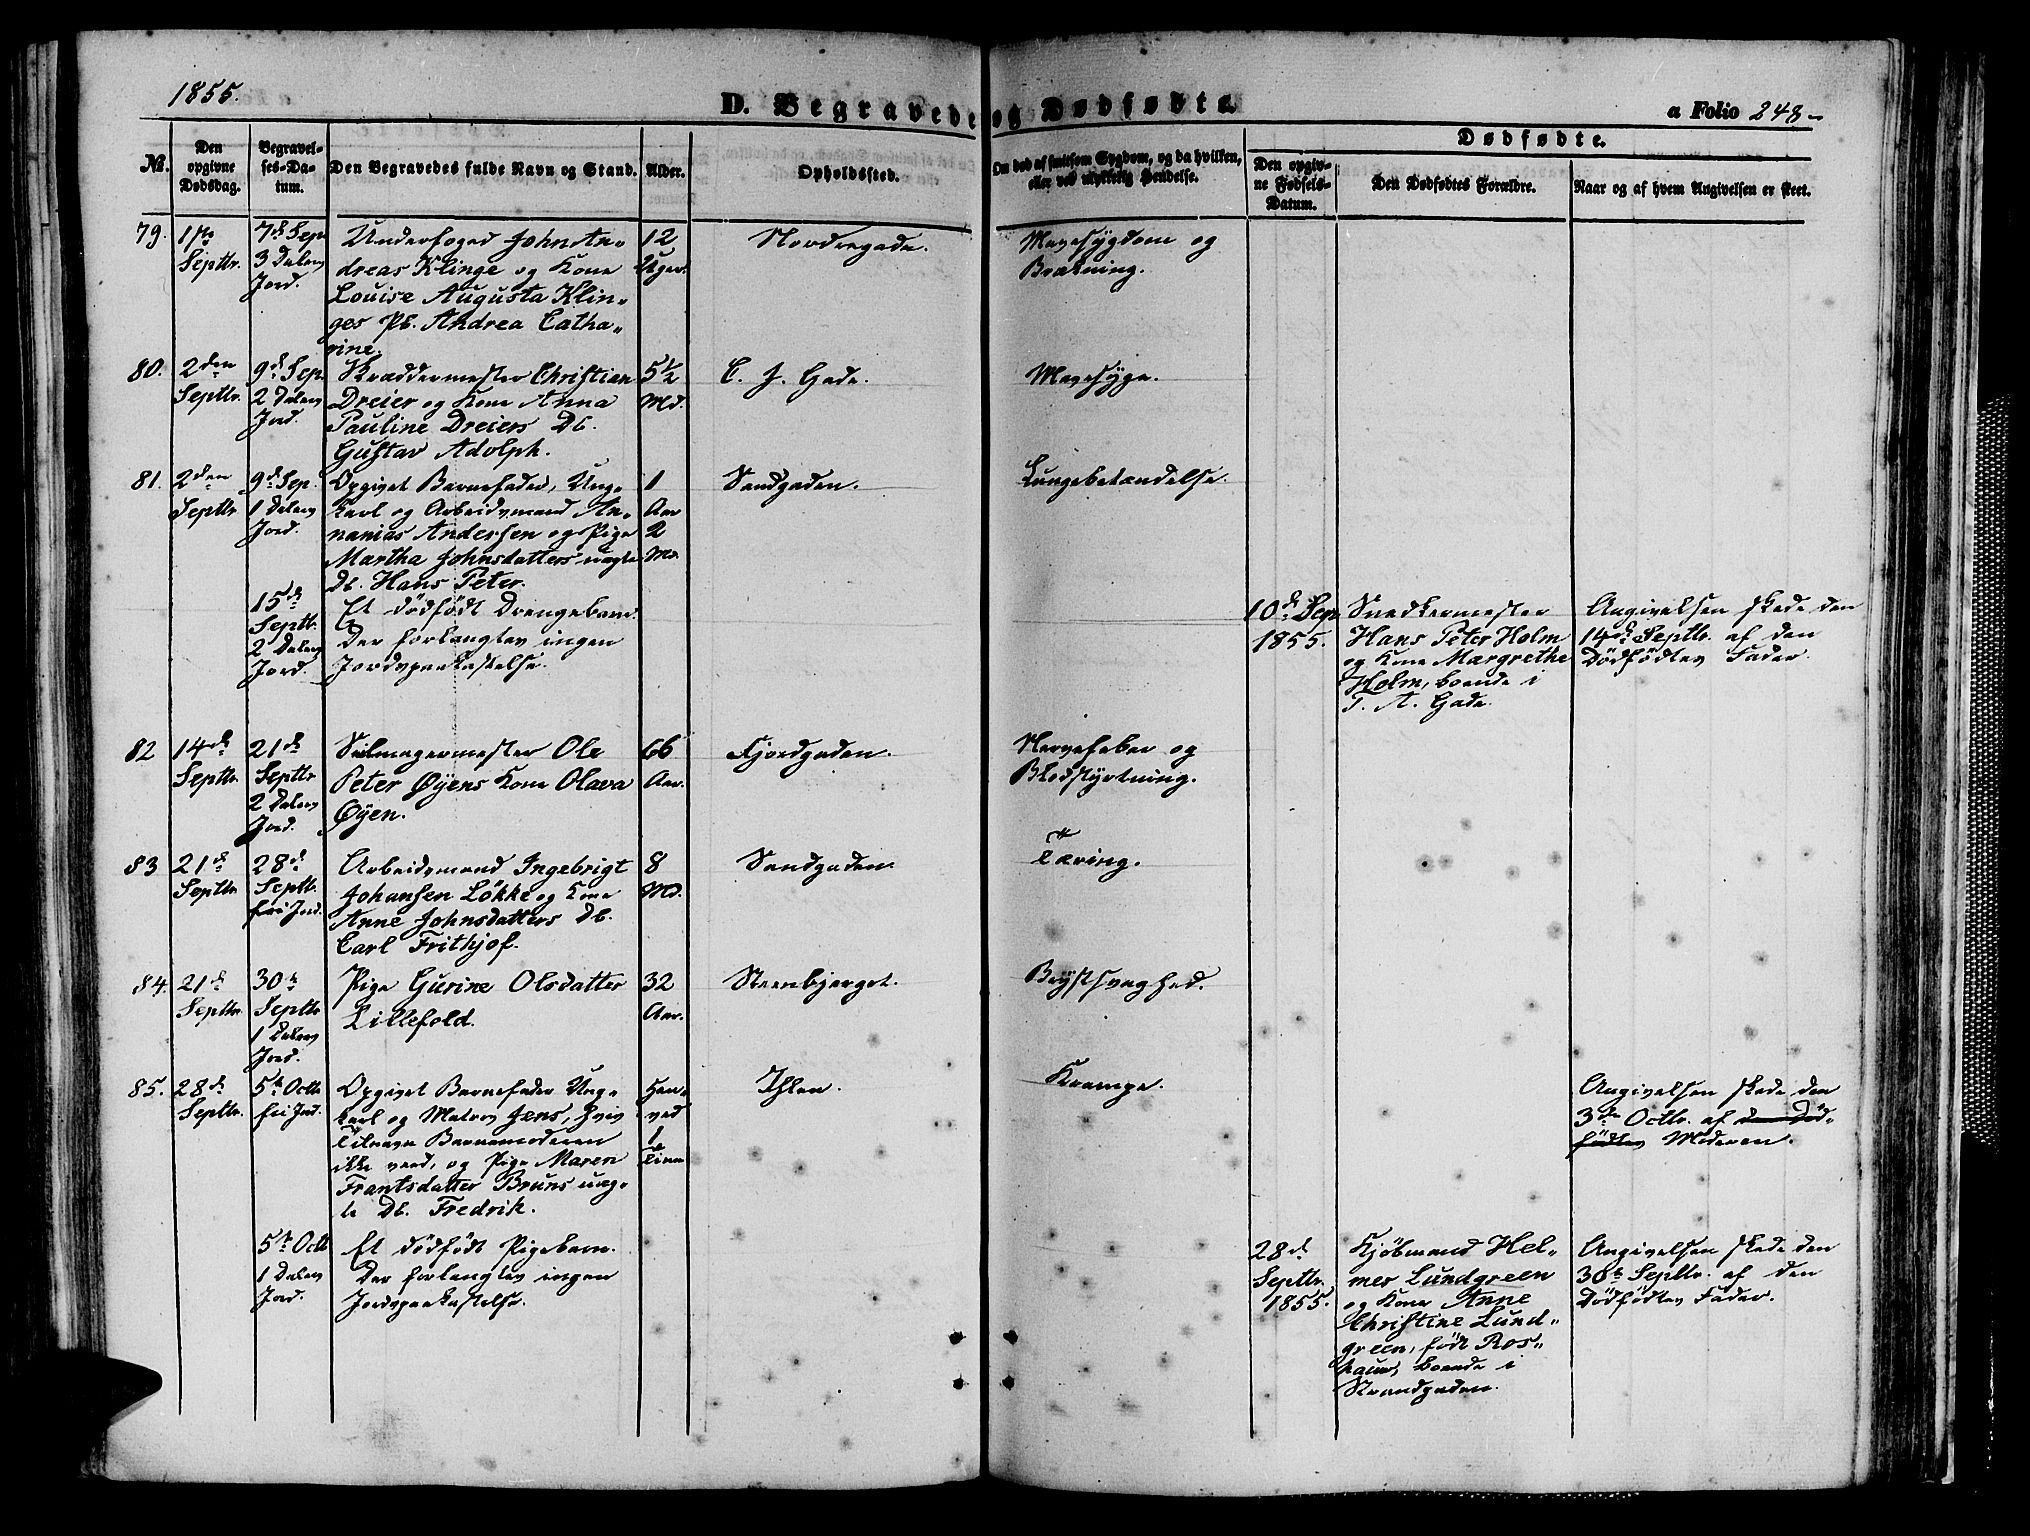 1855.
D. Begravede og Dødfødte.
a Folio 248
No.
Den opgivne Dødsdag.
Begravelses-Datum.
Den Begravedes fulde Navn og Stand.
Alder.
Opholdssted.
Om død af smitsom Sygdom, og da hvilken, eller ved ulykkelig Hendelse.
Dødfødte.
Den opgivne Fødsels-Datum.
Den Dødfødtes Forældre.
Naar og af hvem Angivelsen er skeet.
79.
Septbr.
7de Sep.
3 Dalers
Jord.
Underfoged John An-
dreas Klinge og Kone
Louise Augusta Klin-
ges Pb. Andrea Catha-
rine.
12
Uger.
Nordregade.
Mavesygdom og
Brækning.
80.
2den
Septbr.
9de Sep.
2 Dalers
Jord.
Skræddermester Christian
Dreier og Kone Anna
Pauline Dreiers Db.
Gustav Adolph.
5 1/2
Md.
C. J. Gade.
Mavesyge.
81.
2den
Septbr.
9de Sep.
1 Dalers
Jord.
Opgivet Barnefader, Ung-
karl og Arbeidsmand An-
nanias Andersen og Pige
Martha Johnsdatters uægte
Db. Hans Peter.
1
Aar
2
Md.
Sandgaden.
Lungebetændelse.
15de
Septbr.
2 Dalers
Jord.
Et dödfödt Drengebarn.
Der forlangtes ingen
Jordspaakastelse.
10de Sep.
1855.
Snedkermester
Hans Peter Holm
og Kone Margrethe
Holm, boende i
T. A. Gade.
Angivelsen skede den
14de Septbr. af den
Dödfödtes Fader.
82
14de
Septbr.
21de
Septbr.
2 Dalers
Jord.
Salmagermester Ole
Peter Øyens Kone Olava
Øyen.
66
Aar.
Fjordgaden.
Nervefeber og
Blodstyrtning.
83
21de
Septbr.
28de
Septbr.
fri Jord.
Arbeidsmand Ingebrigt
Johansen Lökke og Kone
Anne Johnsdatters Db.
Carl Frithjof.
8
Md.
Sandgaden.
Tæring.
84.
21de
Septbr.
30te
Septbr.
1 Dalers
Jord.
Pige Gurine Olsdatter
Lillefold.
32
Aar.
Steenbjerget.
Brystsvaghed.
85.
28de
Septbr.
5te Octbr.
fri Jord.
Opgivet Barnefader Ung-
karl og Matros Jens, hvis
Tilnavn Barnemoderen
ikke veed, og Pige Maren
Frantsdatter Bruns uæg-
te Db. Fredrik.
Hen-
ved
1
Time
Ihlen.
Krampe.
Angivelsen skede den
3die Octbr. af den Död-
födtes Moderen.
5te Octb.
1 Dalers
Jord.
Et dödfödt Pigebarn.
Der forlangtes ingen
Jordspaakastelse.
28de
Septbr.
1855.
Kjöbmand Hel-
mer Lundgreen
og Kone Anne
Christine Lund-
green, födt Ros-
haus, boende i
Strandgaden.
Angivelsen skede den
30te Septbr. af den
Dödfödtes Fader.